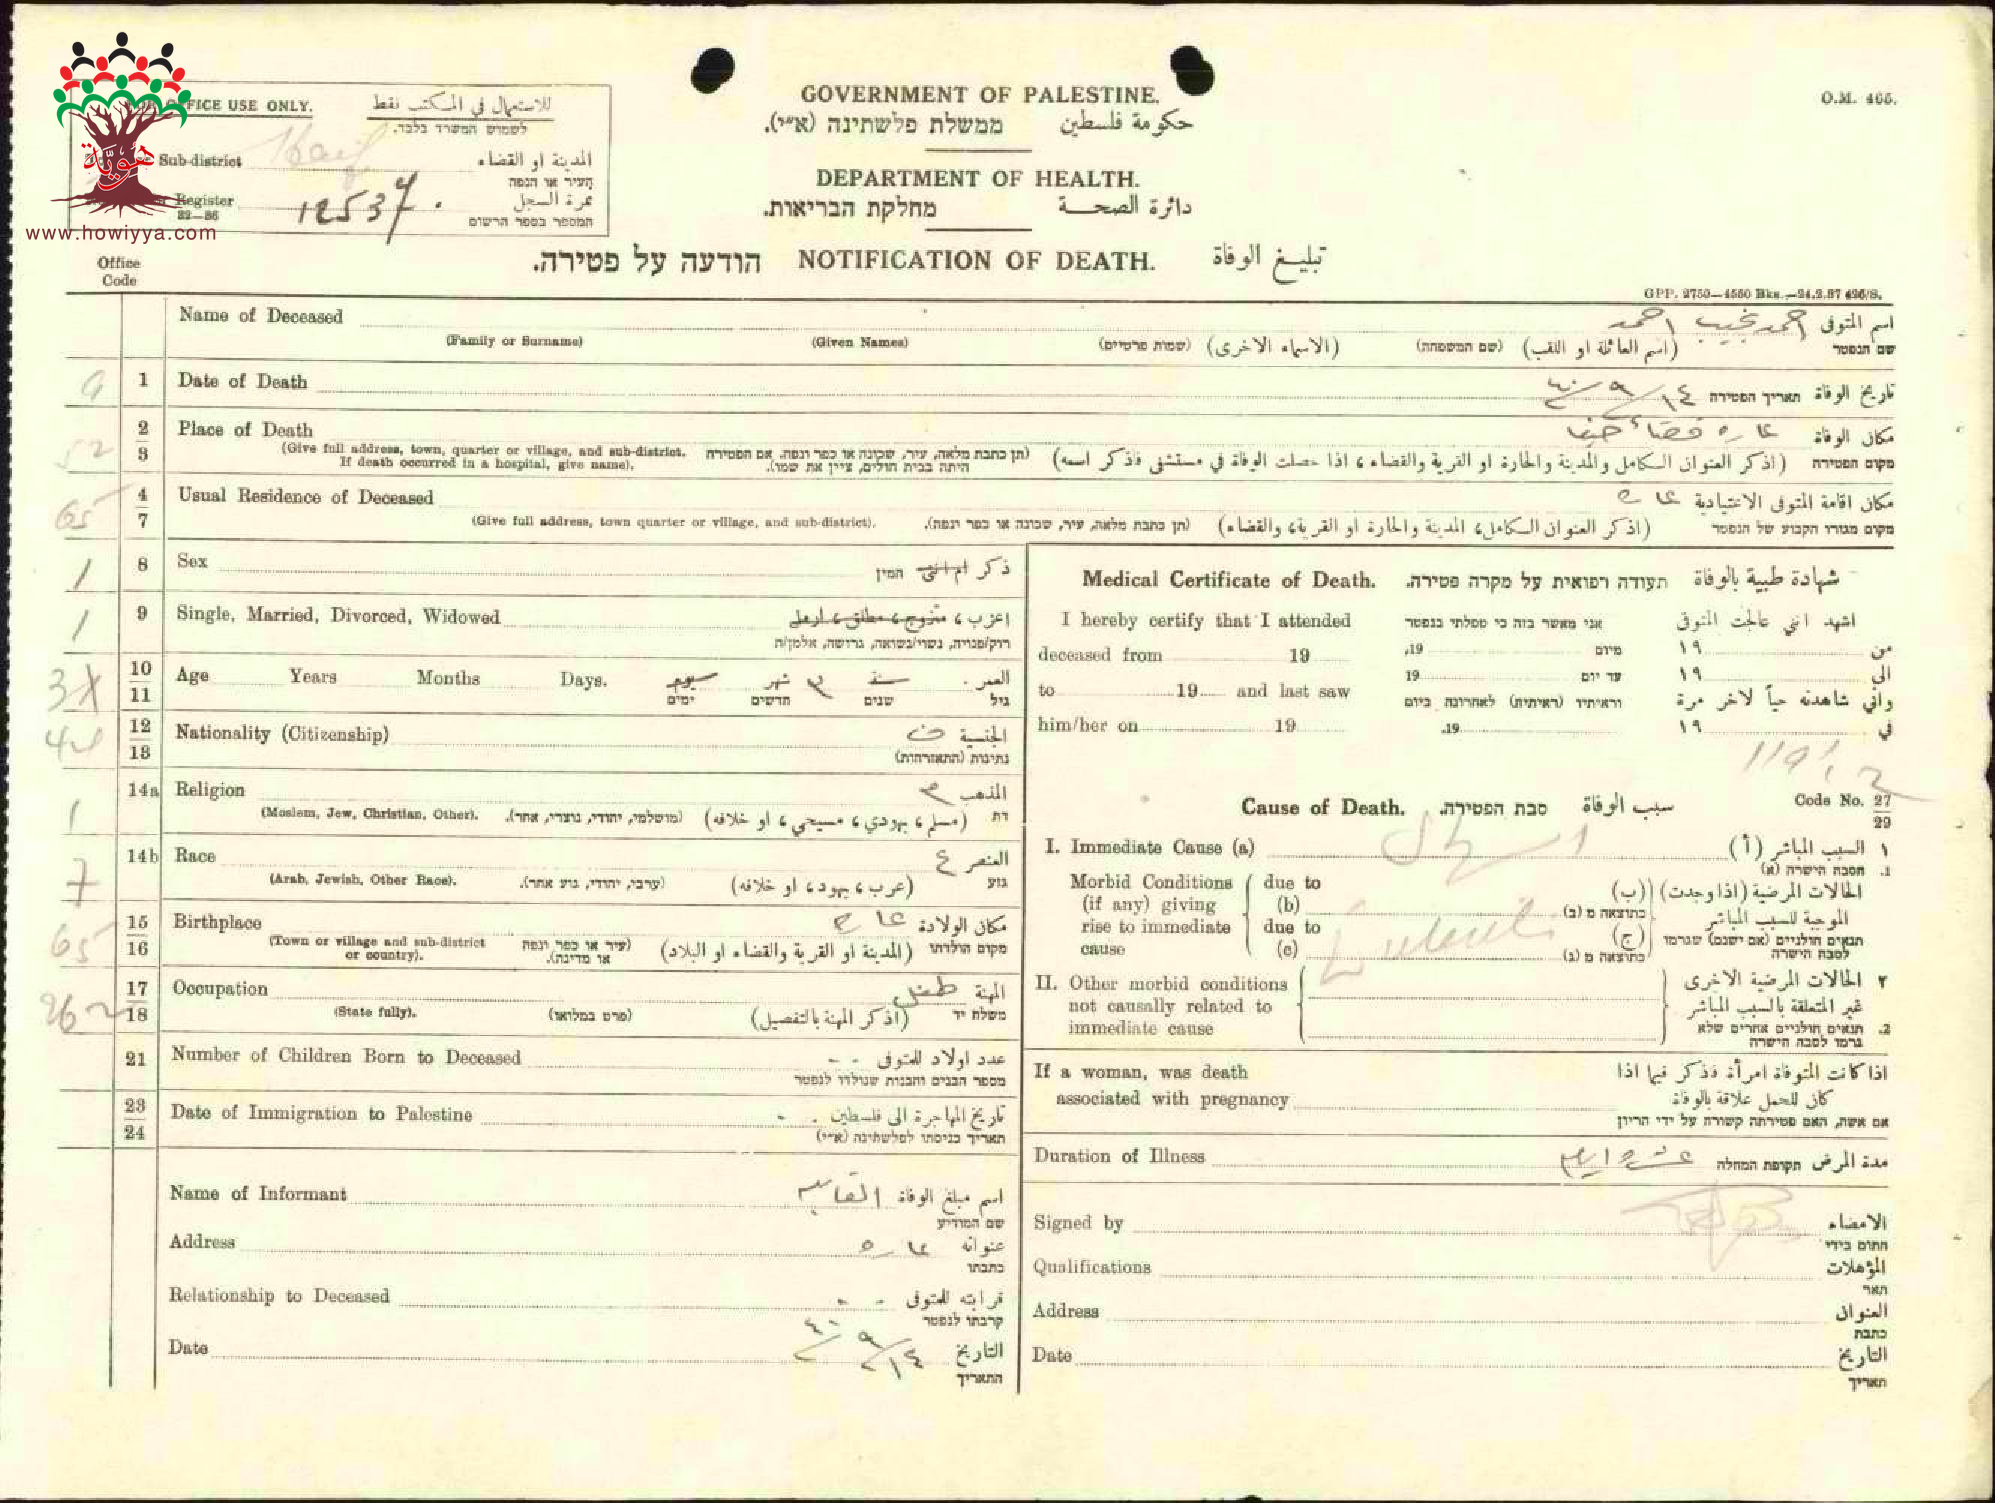 GOVERNMENT OF PALESTINE.
حكومة فلسطين ממשלת פלשתינה (א״י).
O.M. 465.
DEPARTMENT OF HEALTH.
دائرة الصحة מחלקת הבריאות.
OFFICE USE ONLY. للاستعمال في المكتب فقط
לשמוש המשרד בלבד.
Sub-district المدينة او القضاء
העיר או הנפה
Register 12537 نمرة السجل
22—26 המספר בספר הרשום
هوية
www.howiyya.com
הודעה על פטירה. NOTIFICATION OF DEATH. تبليغ الوفاة
Office
Code
GPP. 2750—4550 Bks.—24.2.37 426/S.
Name of Deceased اسم المتوفى احمد نجيب احمد
(Family or Surname) (Given Names) (שמות פרטיים) (الاسماء الاخرى) (שם המשפחה) (اسم العائلة او اللقب) שם הנפטר
9 1 Date of Death تاريخ الوفاة תאריך הפטירה ١٤/٩/٤٠
52 2 3 Place of Death مكان الوفاة عاره قضاء حيفا
(Give full address, town, quarter or village, and sub-district. If death occurred in a hospital, give name).
(תן כתבת מלאה, עיר, שכונה או כפר ונפה. אם הפטירה היתה בבית חולים, ציין את שמו).
(اذكر العنوان الكامل والمدينة والحارة او القرية والقضاء، اذا حصلت الوفاة في مستشفى فاذكر اسمه) מקום הפטירה
65 4 7 Usual Residence of Deceased مكان اقامة المتوفى الاعتيادية عاره
(Give full address, town quarter or village, and sub-district). (תן כתבת מלאה, עיר, שכונה או כפר ונפה). (اذكر العنوان الكامل، المدينة والحارة او القرية، والقضاء) מקום מגורו הקבוע של הנפטר
1 8 Sex ذكر ام انثى המין
1 9 Single, Married, Divorced, Widowed اعزب، متزوج، مطلق، ارمل
רוק/פנויה, נשוי/נשואה, גרוש/ה, אלמן/ה
10 11 Age Years Months Days. العمر سنة ٣ شهر يوم
גיל שנים חדשים ימים
12 13 Nationality (Citizenship) الجنسية ف
נתינות (התאזרחות)
1 14a Religion المذهب م
(Moslem, Jew, Christian, Other). (מושלמי, יהודי, נוצרי, אחר). (مسلم، يهودي، مسيحي، او خلافه) דת
7 14b Race العنصر ع
(Arab, Jewish, Other Race). (ערבי, יהודי, גזע אחר). (عرب، يهود، او خلافه) גזע
65 15 16 Birthplace مكان الولادة عاره
(Town or village and sub-district or country). (עיר או כפר ונפה או מדינה). (المدينة او القرية والقضاء او البلاد) מקום הולדתו
262 17 18 Occupation المهنة طفل
(State fully). (פרט במלואו) (اذكر المهنة بالتفصيل) משלח יד
21 Number of Children Born to Deceased عدد اولاد المتوفى - -
מספר הבנים והבנות שנולדו לנפטר
23 24 Date of Immigration to Palestine تاريخ المهاجرة الى فلسطين - -
תאריך כניסתו לפלשתינה (א״י)
Name of Informant اسم مبلغ الوفاة القاسم
שם המודיע
Address عنوانه عاره
כתבתו
Relationship to Deceased قرابته للمتوفى - -
קרבתו לנפטר
Date التاريخ ١٤/٩/٤٠
התאריך
Medical Certificate of Death. תעודה רפואית על מקרה פטירה. شهادة طبية بالوفاة
I hereby certify that I attended אני מאשר בזה כי טפלתי בנפטר اشهد انني عالجت المتوفى
deceased from 19 מיום 19, من ١٩
to 19 and last saw עד יום 19 الى ١٩
וראיתיו (ראיתיה) לאחרונה ביום واني شاهدته حياً لاخر مرة
him/her on 19 19. في ١٩
Cause of Death. סבת הפטירה. سبب الوفاة Code No. 27 29
I. Immediate Cause (a) اسهال السبب المباشر (أ) ١
הסבה הישרה (א) 1.
Morbid Conditions due to الحالات المرضية (اذا وجدت) (ب)
(if any) giving (b) כתוצאה מ (ב) الموجبة للسبب المباشر
rise to immediate due to (ج) תנאים חולניים (אם ישנם) שגרמו
cause (c) כתוצאה מ (ג) לסבה הישרה
II. Other morbid conditions الحالات المرضية الاخرى ٢
not causally related to غير المتعلقة بالسبب المباشر
immediate cause תנאים חולניים אחרים שלא 2.
גרמו לסבה הישרה
If a woman, was death اذا كانت المتوفاة امرأة فذكر فيما اذا
associated with pregnancy كان للحمل علاقة بالوفاة
אם אשה, האם פטירתה קשורה על ידי הריון
Duration of Illness مدة المرض תקופת המחלה عشرة ايام
Signed by الامضاء
חתום בידי
Qualifications المؤهلات
תאר
Address العنوان
כתבת
Date التاريخ
תאריך